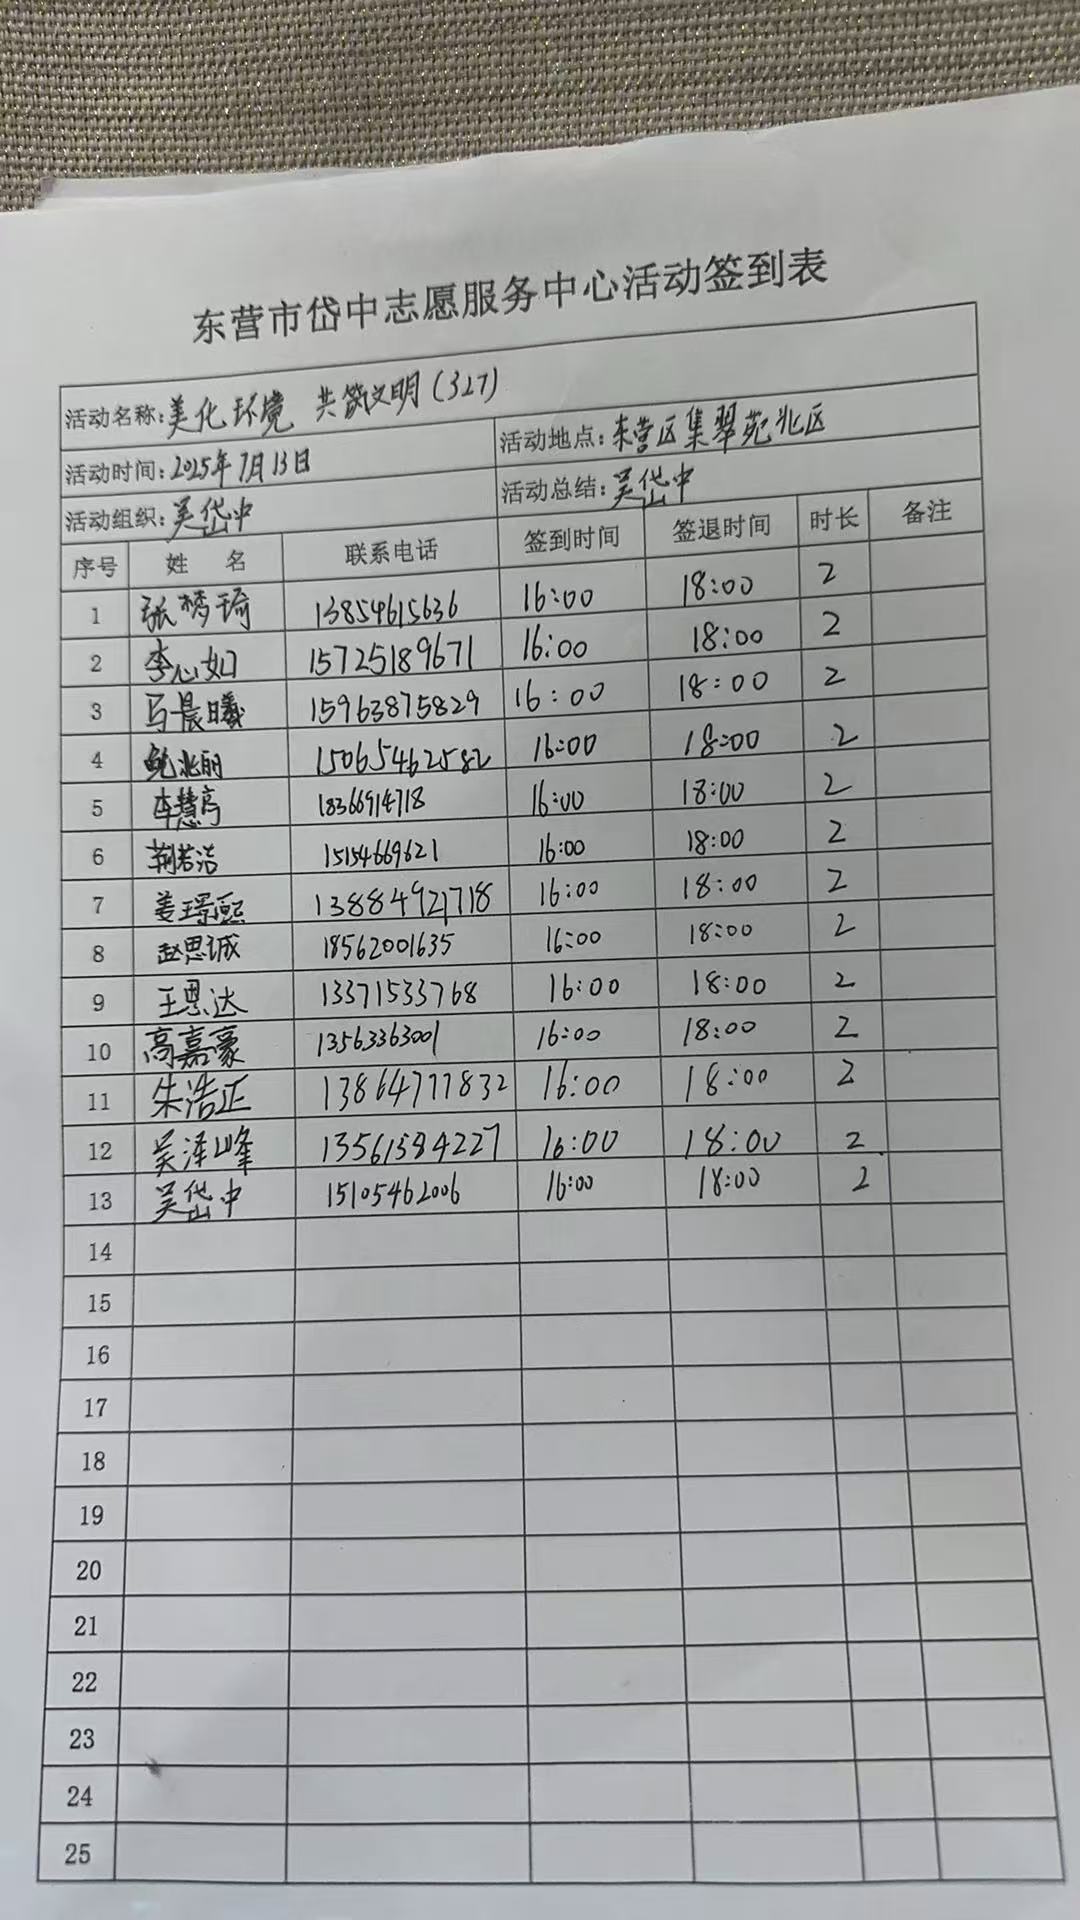 东营市岱中志愿服务中心活动签到表
活动名称:美化环境 共筑文明(327)
活动时间:2025年7月13日 活动地点:东营区集翠苑北区
活动组织:吴岱中 活动总结:吴岱中
序号 姓 名 联系电话 签到时间 签退时间 时长 备注
1 张梦琦 13854615636 16:00 18:00 2
2 李心如 15725189671 16:00 18:00 2
3 马晨曦 15963875829 16:00 18:00 2
4 鲍兆丽 15065462582 16:00 18:00 2
5 李慧亭 18366914718 16:00 18:00 2
6 荆若洁 15154669621 16:00 18:00 2
7 姜璟熙 13884921718 16:00 18:00 2
8 赵思诚 18562001635 16:00 18:00 2
9 王思达 13371533768 16:00 18:00 2
10 高嘉豪 13563363001 16:00 18:00 2
11 朱浩正 13864771832 16:00 18:00 2
12 吴泽峰 13561584227 16:00 18:00 2
13 吴岱中 15105462006 16:00 18:00 2
14
15
16
17
18
19
20
21
22
23
24
25